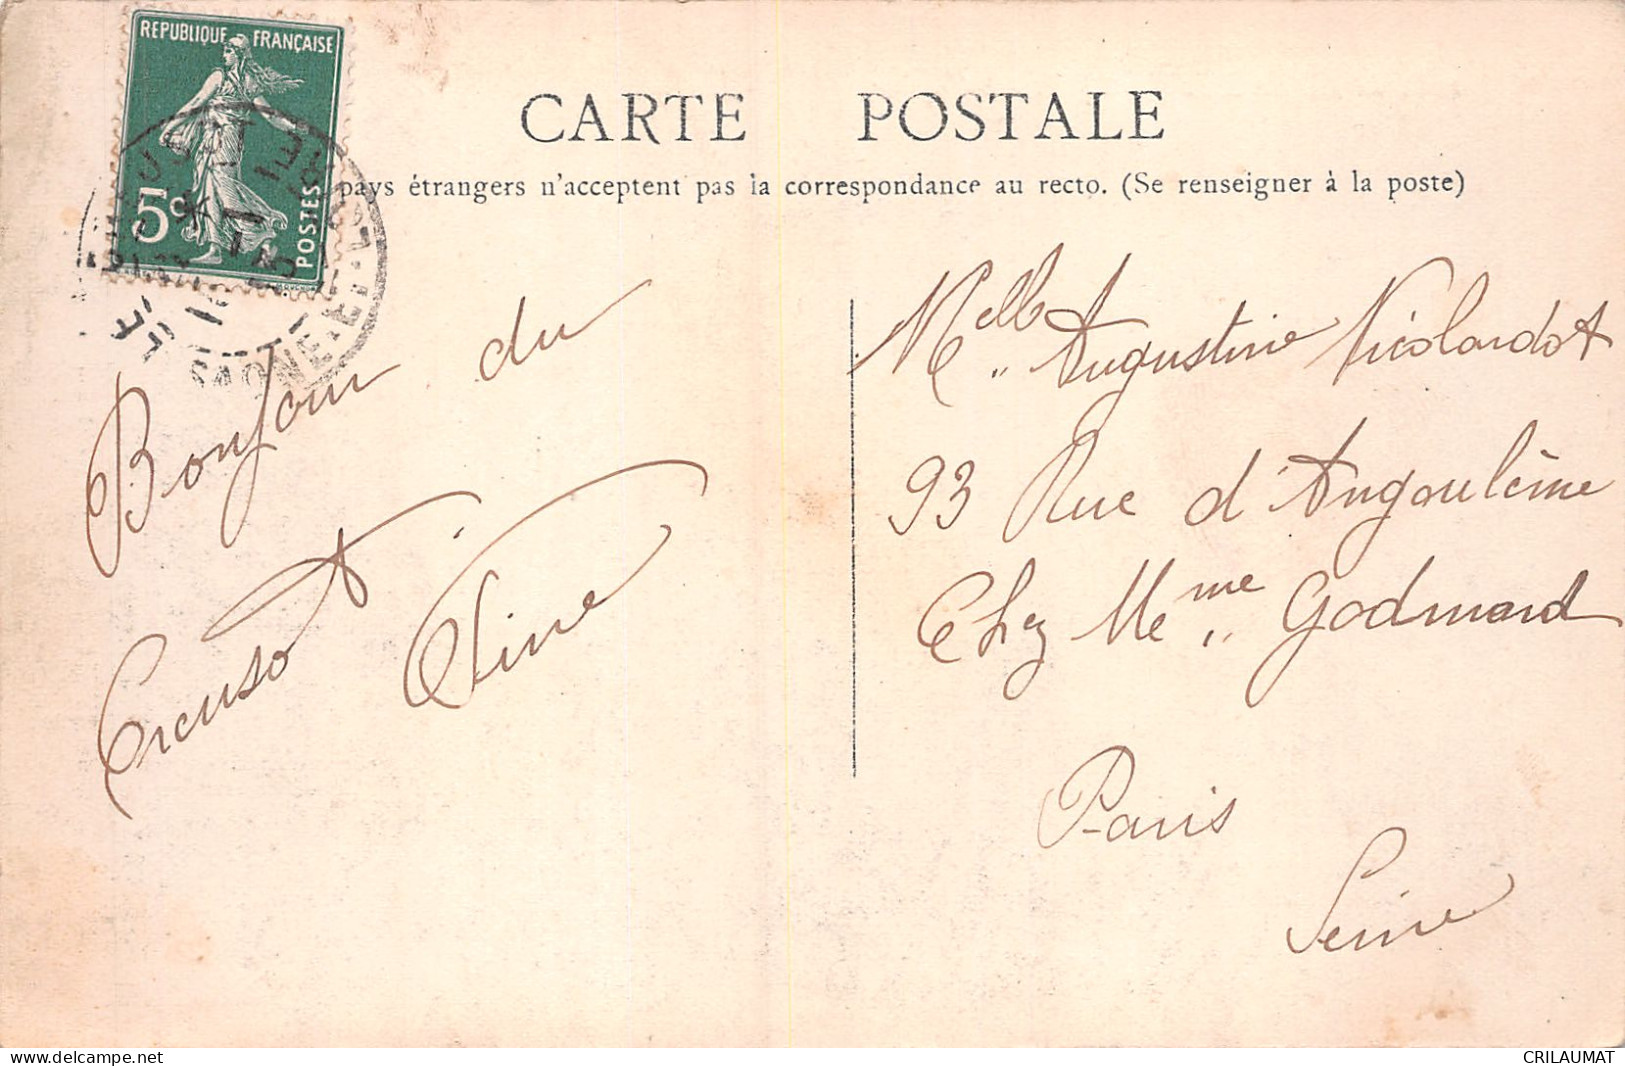 REPUBLIQUE FRANÇAISE
5c
POSTES
SAONE-ET-L
CARTE POSTALE
pays étrangers n'acceptent pas la correspondance au recto. (Se renseigner à la poste)
Bonjour du
Creusot
Cline
Melle Augustine Nicolardot
93 Rue d'Angoulême
Chez Mme Godmard
Paris
Seine
delcampe.net
CRILAUMAT